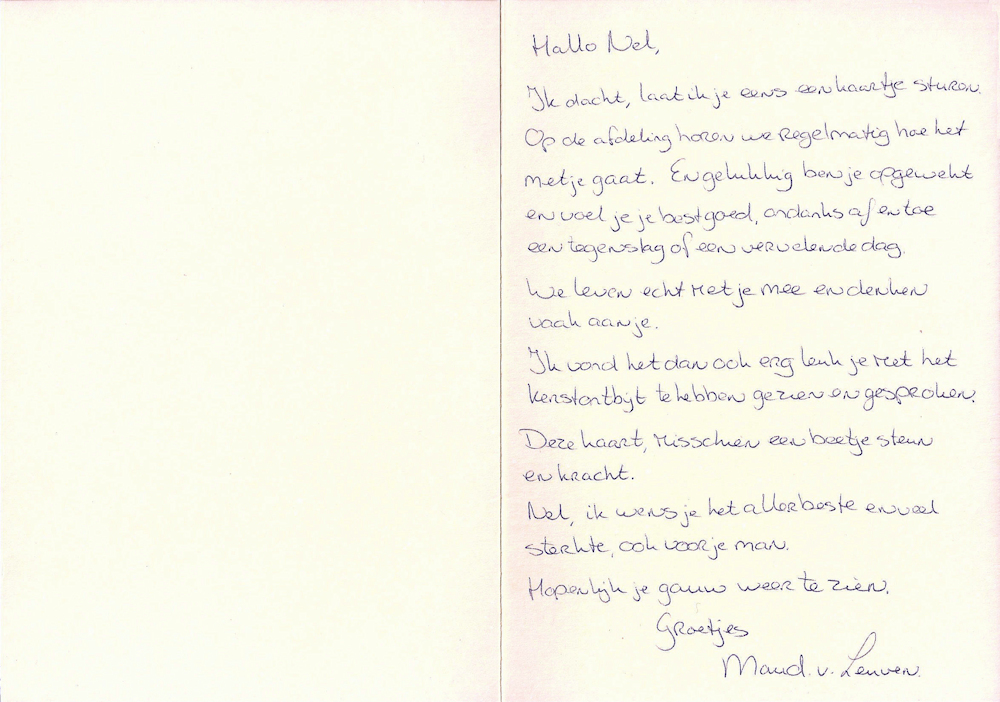 Hallo Nel,
Ik dacht, laat ik je eens een kaartje sturen.
Op de afdeling horen we regelmatig hoe het
met je gaat. En gelukkig ben je opgewekt
en voel je je best goed, ondanks af en toe
een tegenslag of een vervelende dag.
We leven echt met je mee en denken
vaak aan je.
Ik vond het dan ook erg leuk je met het
kerstontbijt te hebben gezien en gesproken.
Deze kaart, misschien een beetje steun
en kracht.
Nel, ik wens je het allerbeste en veel
sterkte, ook voor je man.
Hopenlijk je gauw weer te zien.
Groetjes
Maud. v. Leuven.